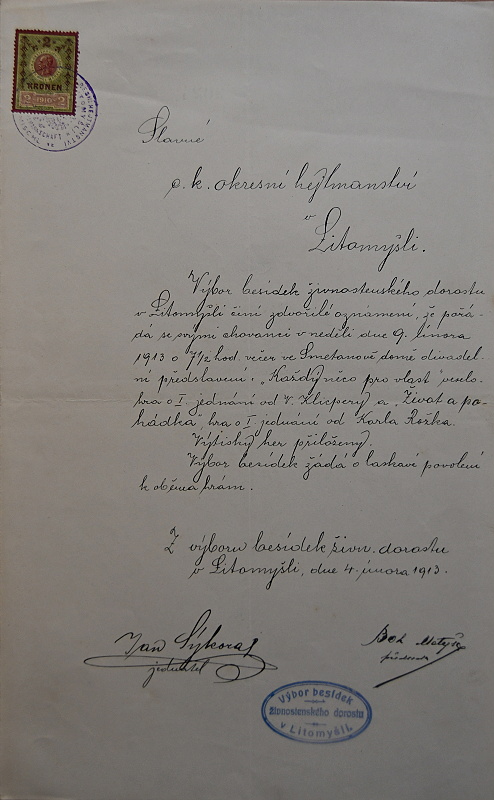 2
KRONEN
2 1910 2
Slavné
c. k. okresní hejtmanství
v
Litomyšli.
Výbor besídek živnostenského dorostu
v Litomyšli činí zdvořilé oznámení, že pořá-
dá se svými chovanci v neděli dne 9. února
1913 o 7½ hod. večer ve Smetanově domě divadel-
ní představení: „Každý něco pro vlast" veselo-
hra o I. jednání od V. Klicpery a „Život a po-
hádka", hra o I. jednání od Karla Rožka.
Výtisky her přiloženy.
Výbor besídek žádá o laskavé povolení
k oběma hrám.
Z výboru besídek živn. dorostu
v Litomyšli, dne 4. února 1913.
Jan Sýkora
jednatel
předseda
Výbor besídek
živnostenského dorostu
v Litomyšli.